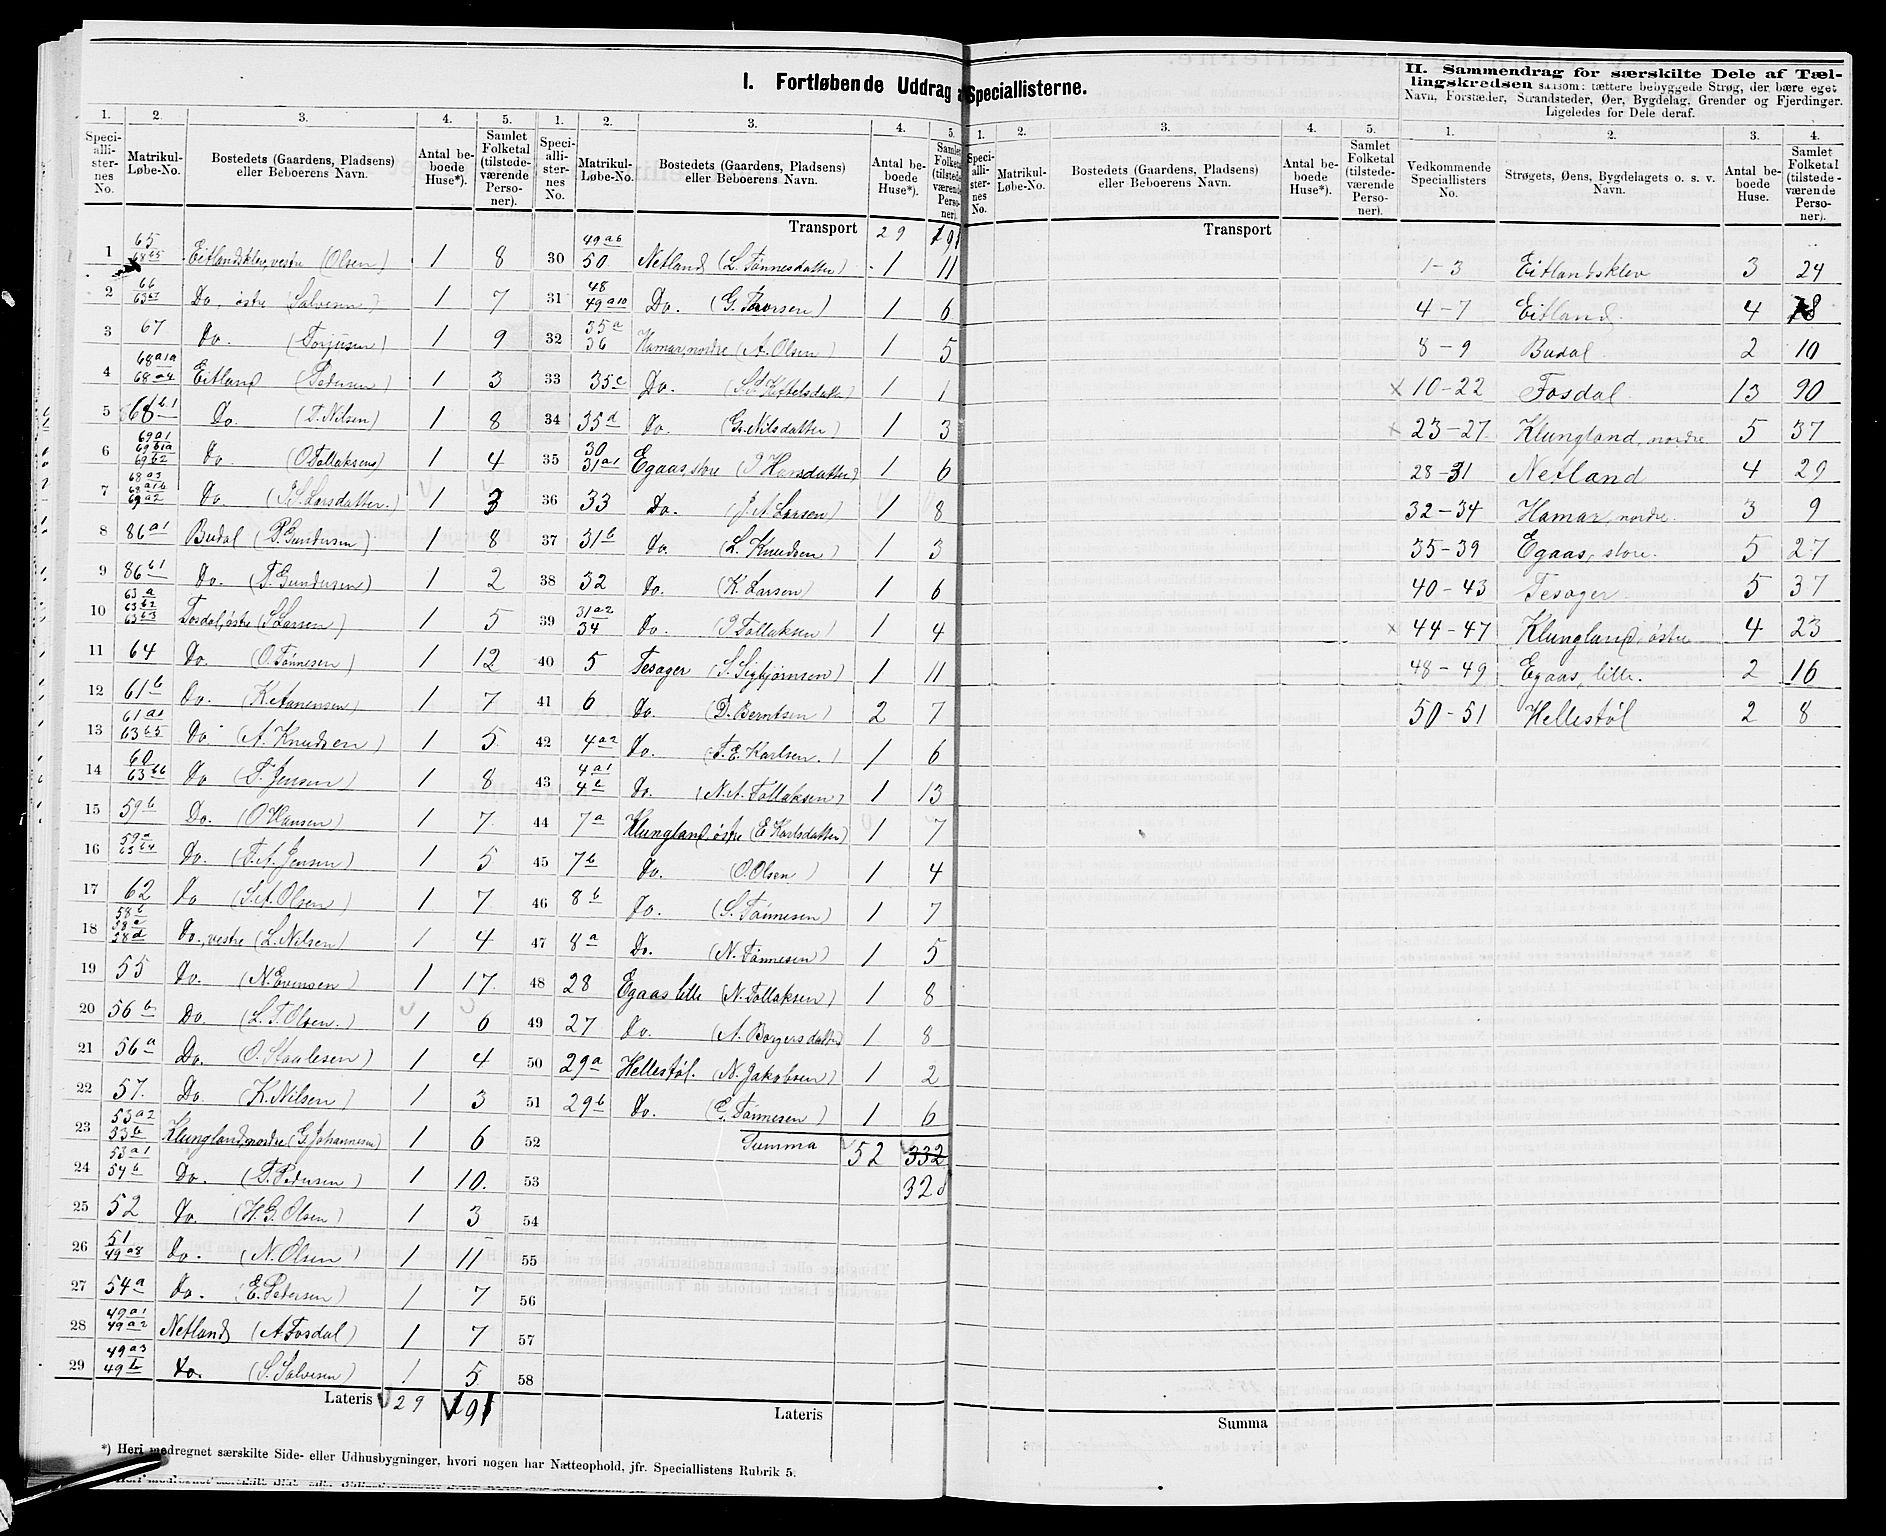 I. Fortløbende Uddrag a Speciallisterne.
1. 2. 3. 4. 5.
Speci-alli-ster-nes No. Matrikul-Løbe-No. Bostedets (Gaardens, Pladsens) eller Beboerens Navn. Antal be-boede Huse*). Samlet Folketal (tilstede-værende Perso-ner).
1 65 68 b5 Eitlandsklev, vestre (Olsen) 1 8
2 66 63 b1 Do, østre (Salvesen) 1 7
3 67 do. (Torjusen) 1 9
4 68 a1a 68 a4 Eitland (Pedersen) 1 3
5 68 b1 do. (T. Nilsen) 1 8
6 69 a1 69 b1a 69 b2 do (O Tollaksens) 1 4
7 68 a3 68 a1b 69 a2 do. (Larsdatter.) 1 3
8 86 a1 Budal (P. Gundersen) 1 8
9 86 b1 do. (T. Gundersen) 1 2
10 63 a 63 b2 63 b3 Fosdal, østre (S Larsen) 1 5
11 64 do. (O. Tønnesen) 1 12
12 61 b do. (K. Aanensen) 1 7
13 61 a1 63 b5 do (A. Knudsen) 1 5
14 60 63 b6 do (T. Jensen) 1 8
15 59 b Do. (O Hansen) 1 7
16 59 a 63 b4 do. (T. A. Jensen) 1 5
17 62 do (S. A. Olsen) 1 7
18 58 b 58 a 58 d do., vestre (L. Nilsen) 1 4
19 55 do. (N. Evensen) 1 17
20 56 b do. (L. T. Olsen.) 1 6
21 56 a Do. (O. Staalesen) 1 4
22 57. Do. (K. Nilsen) 1 3
23 53 a2 53 b Klungland, nordre (G. Johannesen) 1 6
24 53 a1 54 b Do. (T. Pedersen) 1 10.
25 52 do. (H. G. Olsen) 1 3
26 51 49 a8 do. (N. Olsen) 1 11
27 54 a do. (E. Pedersen) 1 7
28 49 a1 49 a2 Netland (A. Fosdal) 1 7
29 49 a3 49 b do. (S. Salvesen) 1 5
Lateris 29 191
*) Heri medregnet særskilte Side- eller Udhusbygninger, hvori nogen har Natteophold, jfr. Speciallistens Rubrik 5.
1. 2. 3. 4. 5.
Speci-alli-ster-nes No. Matrikul-Løbe-No. Bostedets (Gaardens, Pladsens) eller Beboerens Navn. Antal be-boede Huse*). Samlet Folketal (tilstede-værende Perso-ner).
Transport 29 191
30 49 a6 50 Netland (L. Tønnesdatter) 1 11
31 48 49 a10 Do. (G. Thorsen) 1 6
32 35 a 36 Hamar, nordre (A. Olsen) 1 5
33 35 c Do. (Kittelsdatter) 1 1
34 35 d do. (G. Nilsdatter) 1 3
35 30 31 a1 Egaas, store (Hansdatter) 1 6
36 33 Do. (J. A. Larsen) 1 8
37 31 b do. (L. Knudsen) 1 3
38 32 do. (K. Larsen) 1 6
39 31 a2 34 do. (Tollaksen) 1 4
40 5 Tesager (S. Sigbjørnsen) 1 11
41 6 do. (D. Berntsen) 2 7
42 4 a2 do. (T. E. Karlsen.) 1 6
43 4 a1 4 b do. (N. A. Tollaksen) 1 13
44 7 a Klungland, østre (E Karlsdatter) 1 7
45 7 b do. (O. Olsen) 1 4
46 8 b do. (S. Tønnesen) 1 7
47 8 a Do. (N. Tønnesen) 1 5
48 28 Egaas lille (N. Tollaksen) 1 8
49 27 do. (A. Borgersdatter) 1 8
50 29 a Hellestøl. (N. Jakobsen) 1 2
51 29 b do. (E. Tønnesen) 1 6
52 Summa 52 332
53 328
54
55
56
57
58
Lateris
1. 2. 3. 4. 5.
Speci-alli-ster-nes No. Matrikul-Løbe-No. Bostedets (Gaardens, Pladsens) eller Beboerens Navn. Antal be-boede Huse*). Samlet Folketal (tilstede-værende Perso-ner).
Transport
Summa
II. Sammendrag for særskilte Dele af Tæl-
lingskredsen saasom: tættere bebyggede Strøg, der bære eget
Navn, Forstæder, Strandsteder, Øer, Bygdelag, Grender og Fjerdinger.
Ligeledes for Dele deraf.
1. 2. 3. 4.
Vedkommende Speciallisters No. Strøgets, Øens, Bygdelagets o. s. v. Navn. Antal be-boede Huse. Samlet Folketal (tilstede-værende Perso-ner).
1-3 Eitlandsklev 3 24
4-7 Eitland. 4 18
8-9 Budal 2 10
x 10-22 Fosdal. 13 90
x 23-27 Klungland, nordre 5 37
28-31 Netland 4 29
32-34 Hamar, nordre. 3 9
35-39 Egaas, store. 5 27
40-43 Tesager. 5 37
x 44-47 Klungland, østre 4 23
48-49 Egaas, lille. 2 16
50-51 Hellestøl 2 8